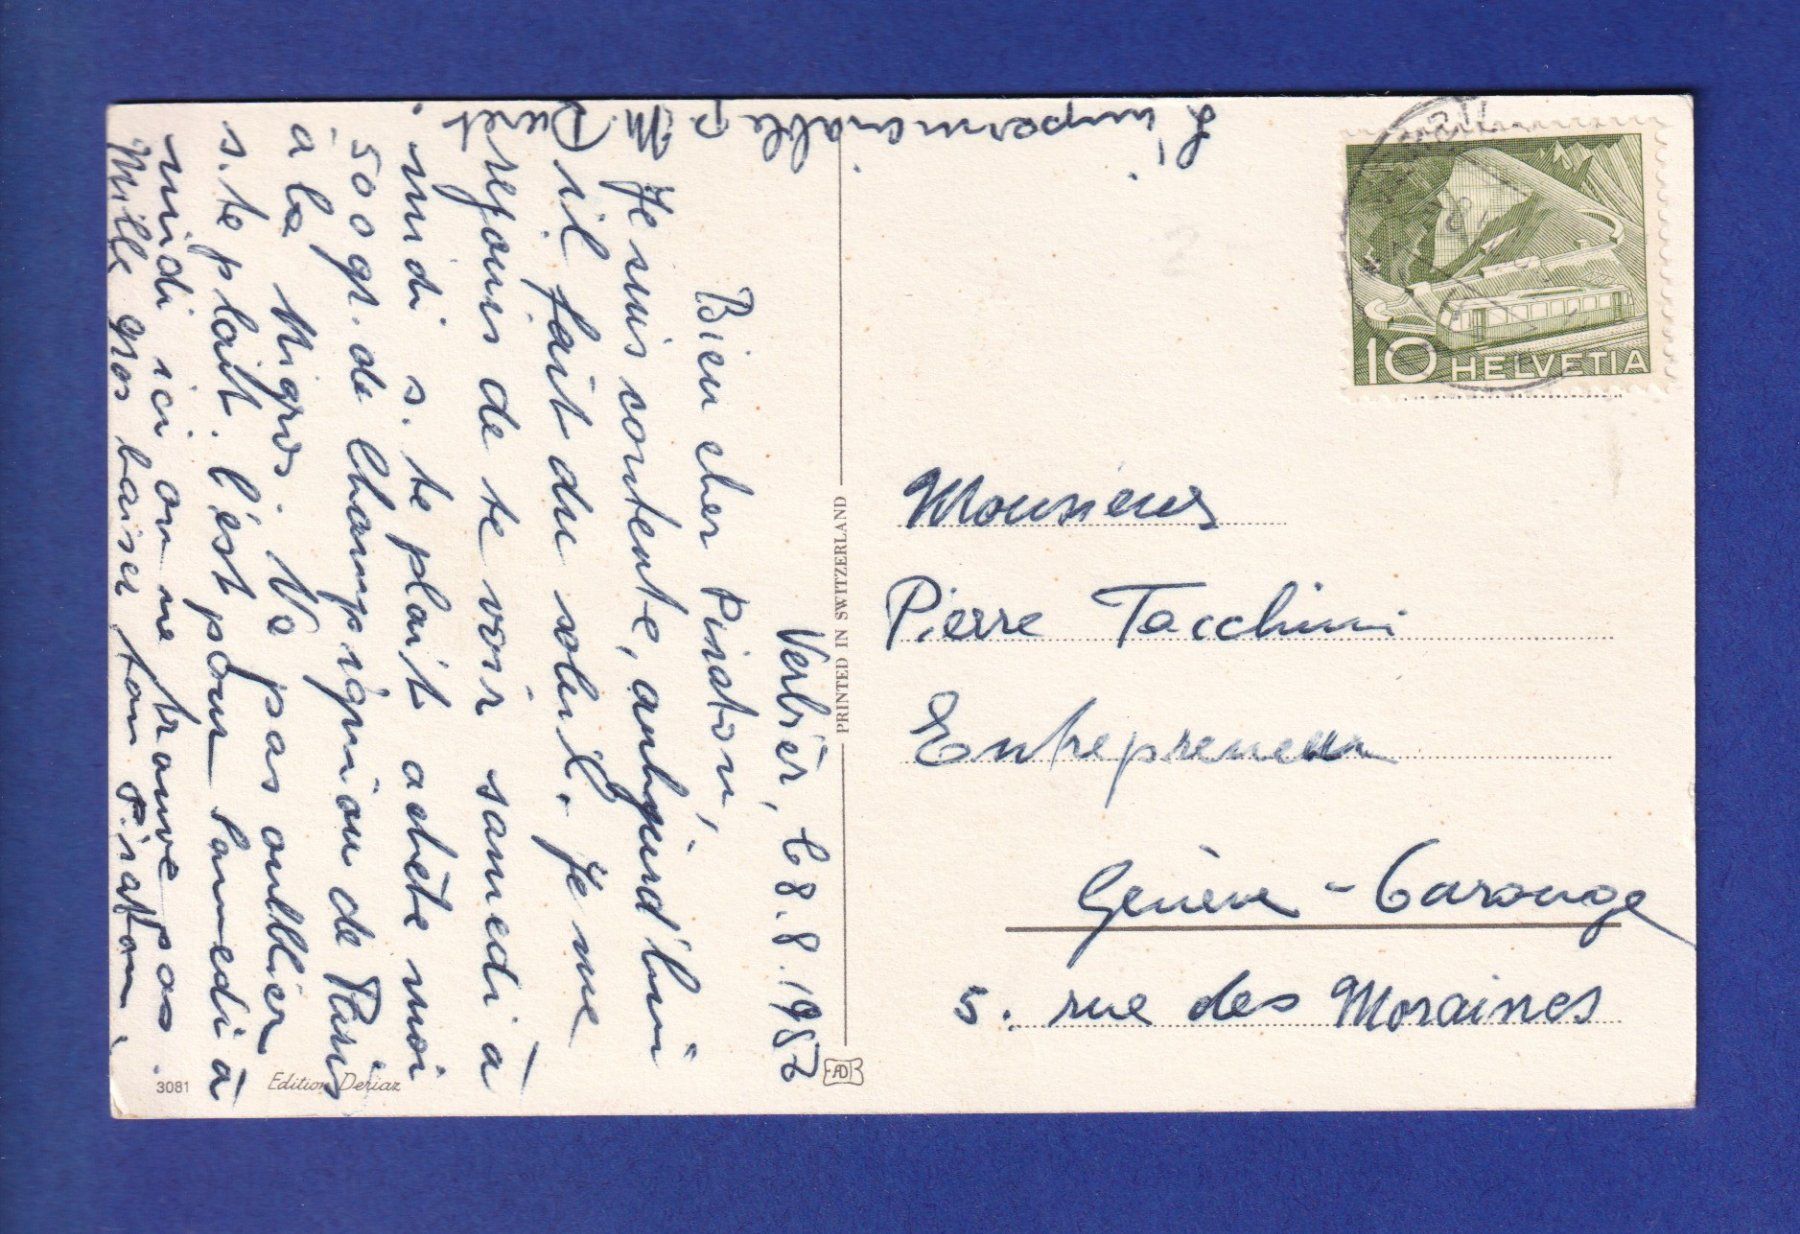 Verbier, le 8.8.1957
Bien cher Piraton,
Je suis contente, aujourd'hui
il fait du soleil. Je me
réjouis de te voir samedi à
midi s. te plaît achète moi
500 gr. de Champignion de Paris
à la Migros. Va pas oublier
s. te plaît. C'est pour samedi à
midi ici on ne trouve pas.
Mille gros baiser ton Piraton.
L'imperméable p. M. Duret
Monsieur
Pierre Tacchini
Entrepreneur
Genève - Carouge
5. rue des Moraines
10 HELVETIA
PRINTED IN SWITZERLAND
3081 Edition Deriaz